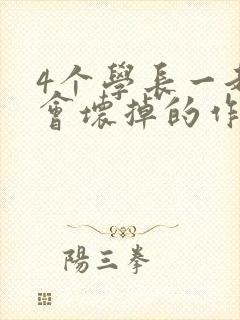 4个學長一
會壞掉的作
陽三拳